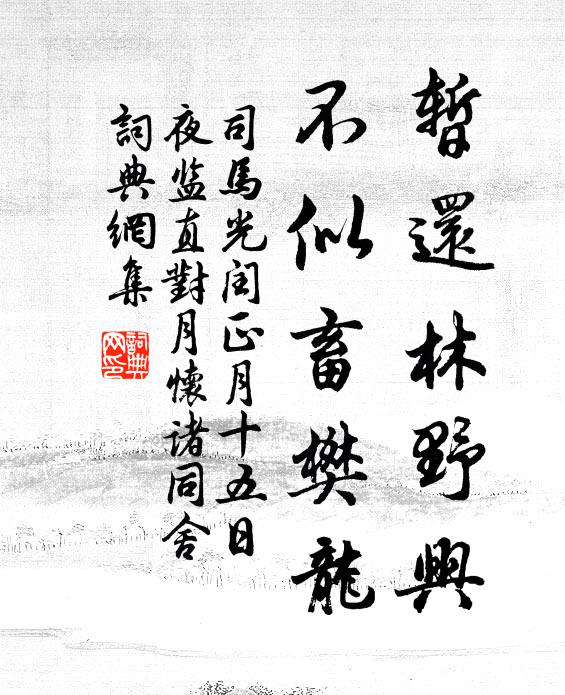 暫還林野興
不似畜樊龍
司馬光閏正月十五日
夜监直對月懷諸同舍
詞典網集
詞典
网印